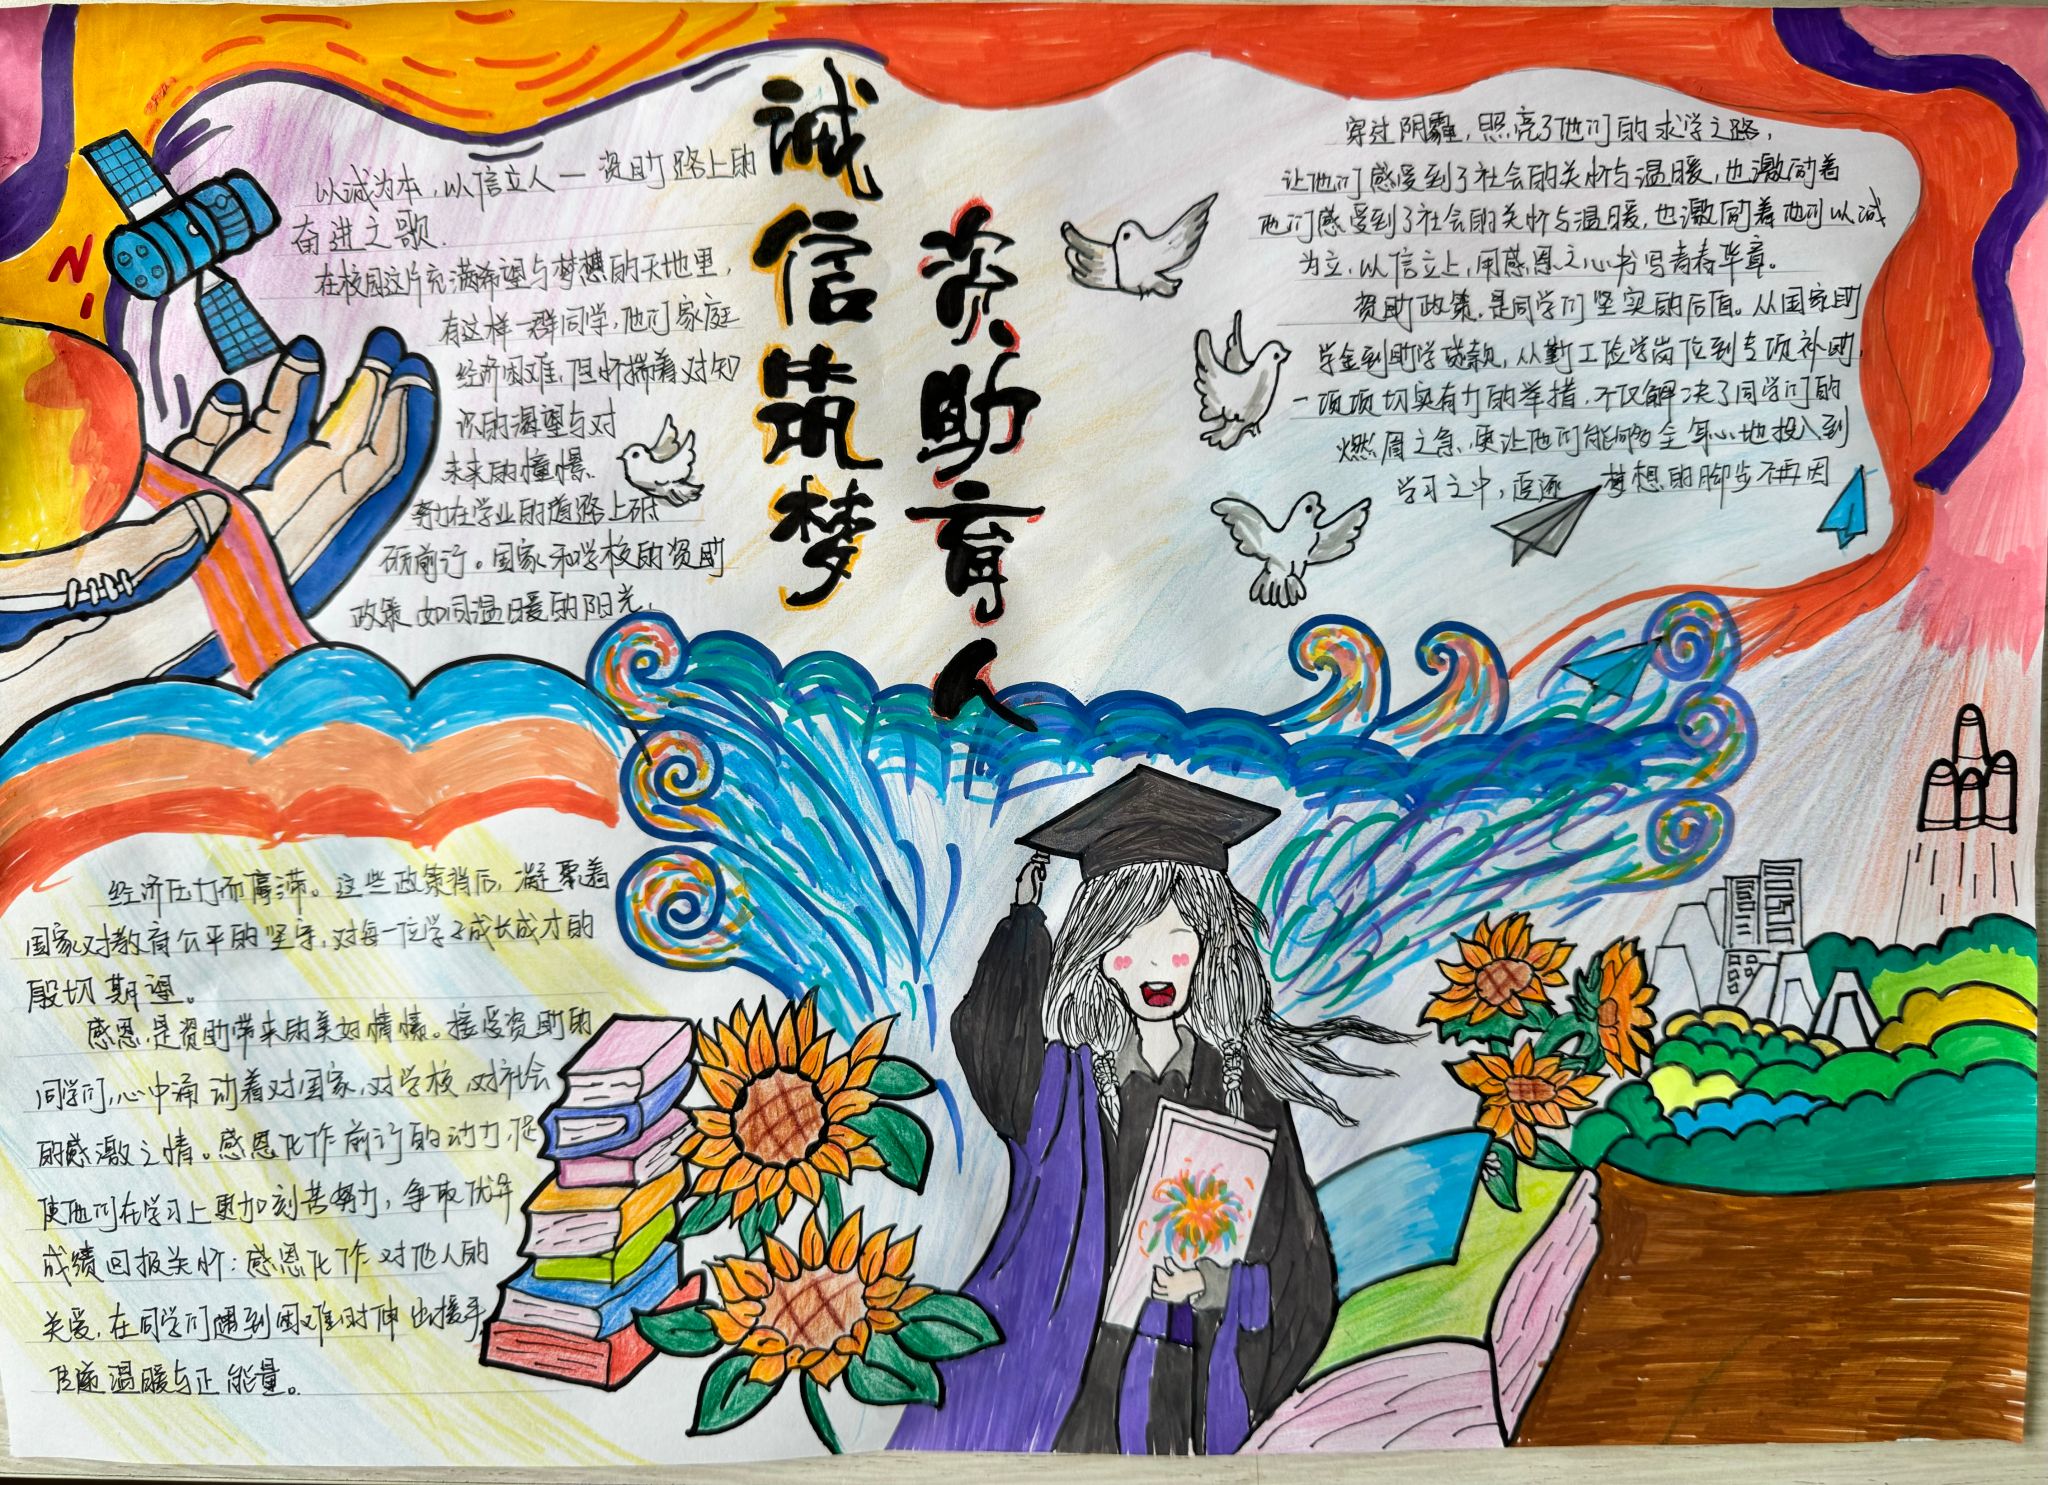 诚信筑梦
资助育人
以诚为本，以信立人—资助路上的
奋进之歌.
在校园这片充满希望与梦想的天地里，
有这样一群同学，他们家庭
经济困难，但怀揣着对知
识的渴望与对
未来的憧憬.
努力在学业的道路上砥
砺前行。国家和学校的资助
政策如同温暖的阳光，
穿过阴霾，照亮了他们的求学之路，
让他们感受到了社会的关怀与温暖，也激励着
他们感受到了社会的关怀与温暖，也激励着他们以诚
为立，以信立上，用感恩之心书写青春华章。
资助政策，是同学们坚实的后盾。从国家助
学金到助学贷款，从勤工俭学岗位到专项补助，
一项项切实有力的举措，不仅解决了同学们的
燃眉之急，更让他们能够全身心地投入到
学习之中，追逐梦想的脚步不再因
经济压力而停滞。这些政策背后，凝聚着
国家对教育公平的坚守，对每一位学子成长成才的
殷切期望。
感恩，是资助带来的美好情愫。接受资助的
同学们，心中涌动着对国家，对学校，对社会
的感激之情。感恩化作前行的动力，促
使他们在学习上更加刻苦努力，争取优异
成绩回报关怀；感恩化作对他人的
关爱，在同学们遇到困难时伸出援手，
传递温暖与正能量。